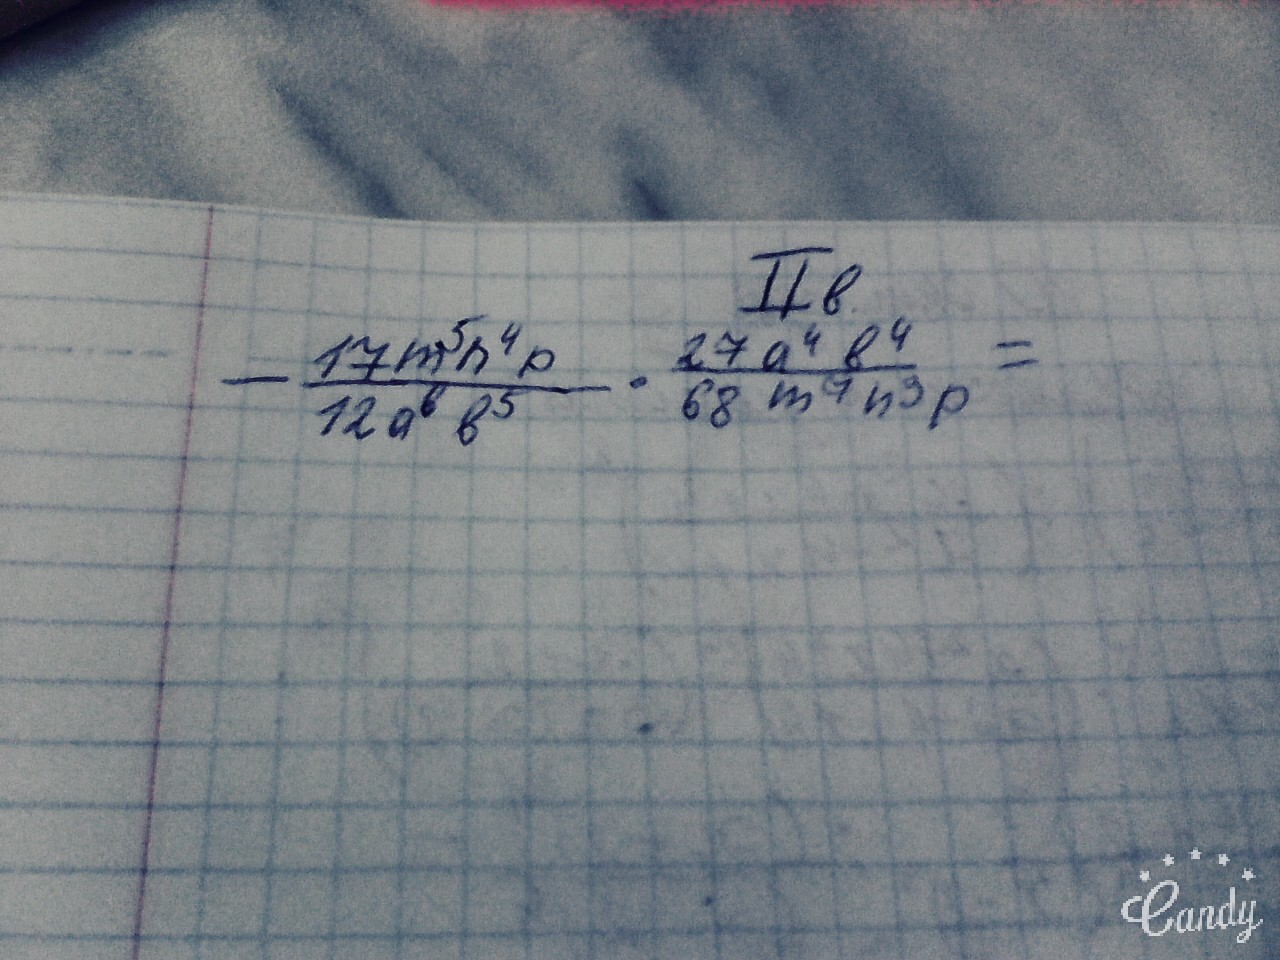 IIв.
- 17m⁵n⁴p / 12a⁶в⁵ · 27a⁴в⁴ / 68m⁴n³p =
Candy